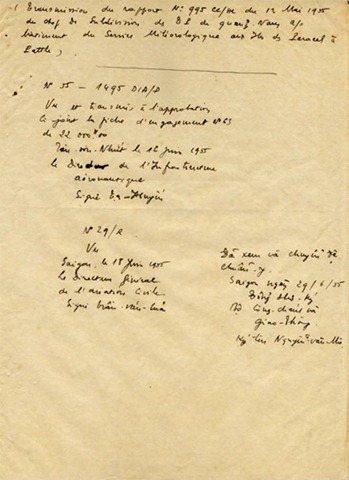 ( Transmission du rapport N° 995 CC/HC du 12 Mai 1955
du chef de Subdivision de BL de Quang-Nam a/s
bâtiment du Service Météorologique aux Iles de Paracel à
battle,
N° 55 - 1495 DIA/D
Vu et transmis à l'approbation
ci-joint la fiche d'engagement N° 63
de 22 000$00
Tân-sơn-Nhứt le 16 juin 1955
Le Directeur de l'Infrastructure
aéronautique
Signé
N° 29/R
Vu
Saigon, le 18 Juin 1955
Le Directeur Général
de l'aviation Civile
Signé Trần-văn-
Đã xem và chuyển
Chuẩn y
Saigon ngày 29/6/55
Tổng thơ-ký
Bộ Công-chánh và
Giao-thông
Ký tên Nguyễn-văn